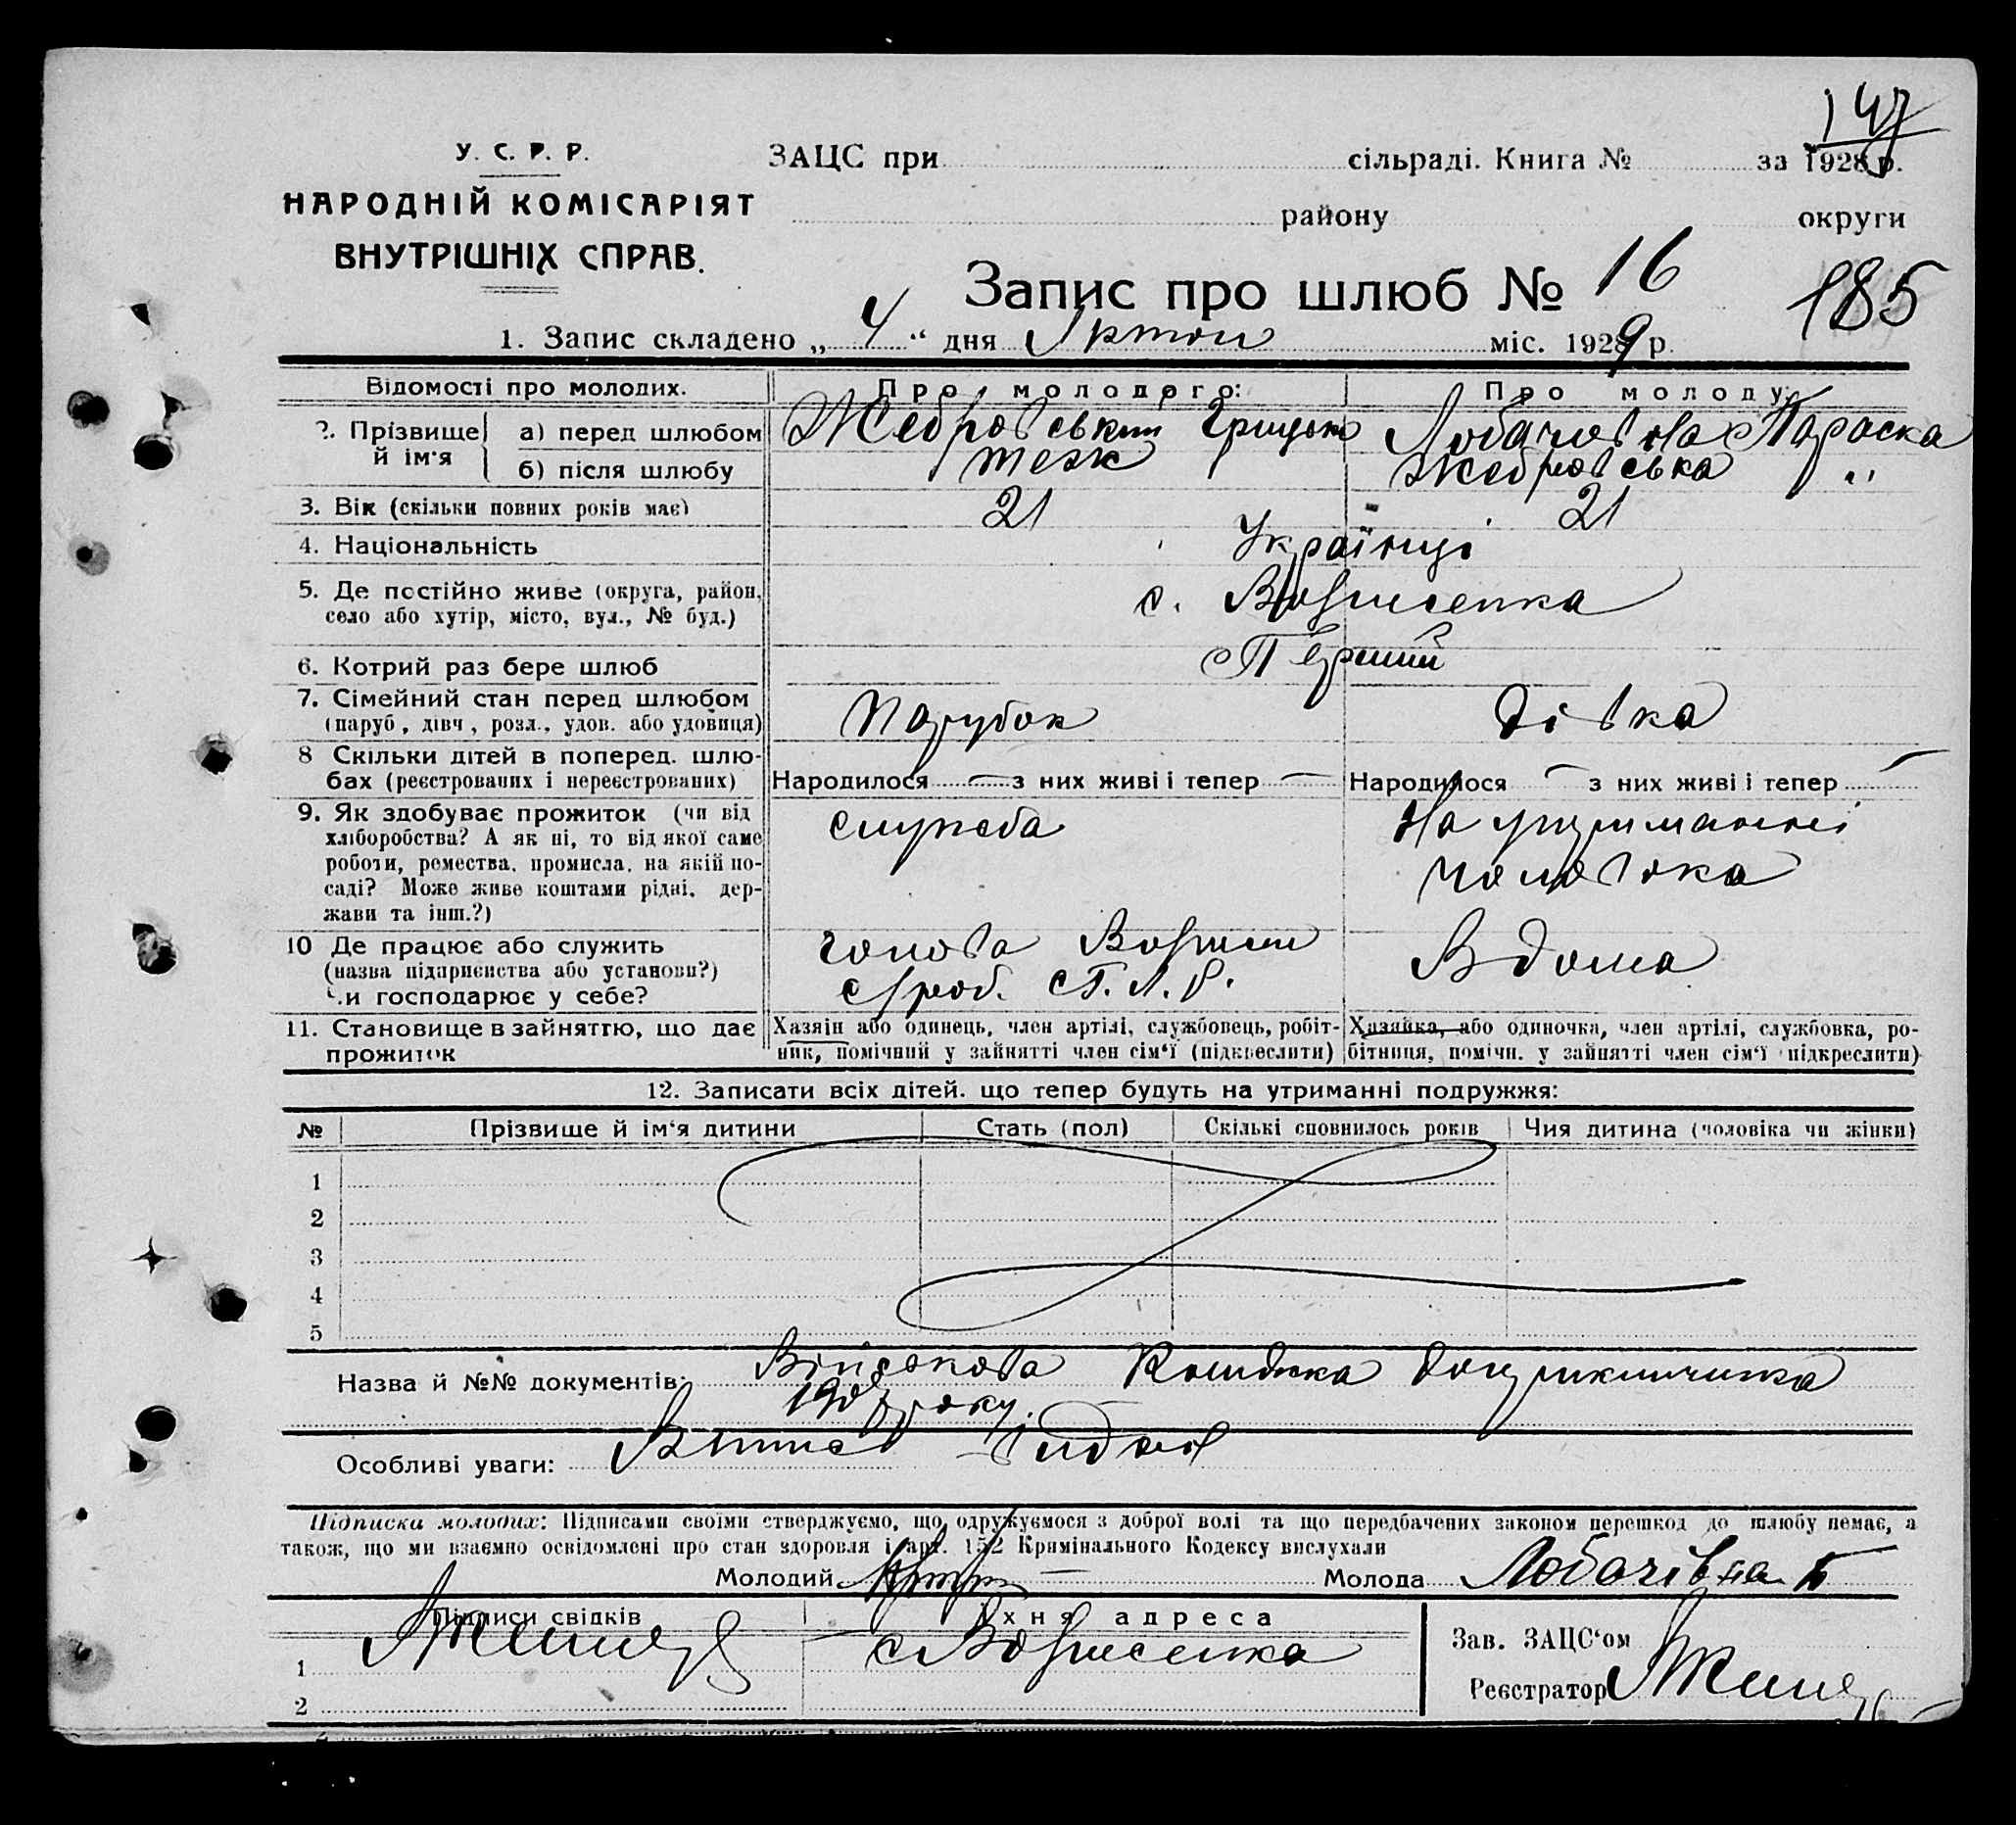 147
У. С. Р. Р.
НАРОДНІЙ КОМІСАРІЯТ
ВНУТРІШНІХ СПРАВ.
ЗАЦС при сільраді. Книга № за 1928 р.
району округи
Запис про шлюб № 16
185
1. Запис складено „ 4 “ дня міс. 1929 р.
Відомості про молодих. Про молодого: Про молоду:
2. Прізвище й ім'я а) перед шлюбом Жебровський Грицько Лобачівна Параска
б) після шлюбу теж Жебровська "
3. Вік (скільки повних років має) 21 21
4. Національність Українці
5. Де постійно живе (округа, район, с. Вознисенка
село або хутір, місто, вул., № буд.)
6. Котрий раз бере шлюб Перший
7. Сімейний стан перед шлюбом Парубок Дівка
(паруб., дівч., розл., удов. або удовиця)
8 Скільки дітей в поперед. шлю-
бах (реєстрованих і нереєстрованих) Народилося — з них живі і тепер — Народилося — з них живі і тепер —
9. Як здобуває прожиток (чи від служба На утриманні
хліборобства? А як ні, то від якої саме чоловіка
роботи, ремества, промисла, на якій по-
саді? Може живе коштами рідні, дер-
жави та інш.?)
10 Де працює або служить голова В дома
(назва підприємства або установи?)
Чи господарює у себе?
11. Становище в зайняттю, що дає Хазяїн або одинець, член артілі, службовець, робіт- Хазяйка, або одиночка, член артілі, службовка, ро-
прожиток ник, помічний у зайнятті член сім'ї (підкреслити) бітниця, помічн. у зайнятті член сім'ї (підкреслити)
12. Записати всіх дітей, що тепер будуть на утриманні подружжя:
№ Прізвище й ім'я дитини Стать (пол) Скількі сповнилось років Чия дитина (чоловіка чи жінки)
1
2
3
4
5
Назва й №№ документів: Військова Книжка
року.
Особливі уваги:
Підписка молодих: Підписами своїми стверджуємо, що одружуємося з доброї волі та що передбачених законом перешкод до шлюбу немає, а
також, що ми взаємно освідомлені про стан здоровля і арт. 152 Кримінального Кодексу вислухали
Молодий Молода Лобачівна П
Підписи свідків Їхня адреса
Зав. ЗАЦС'ом
1 с Вознисенка
Реєстратор
2